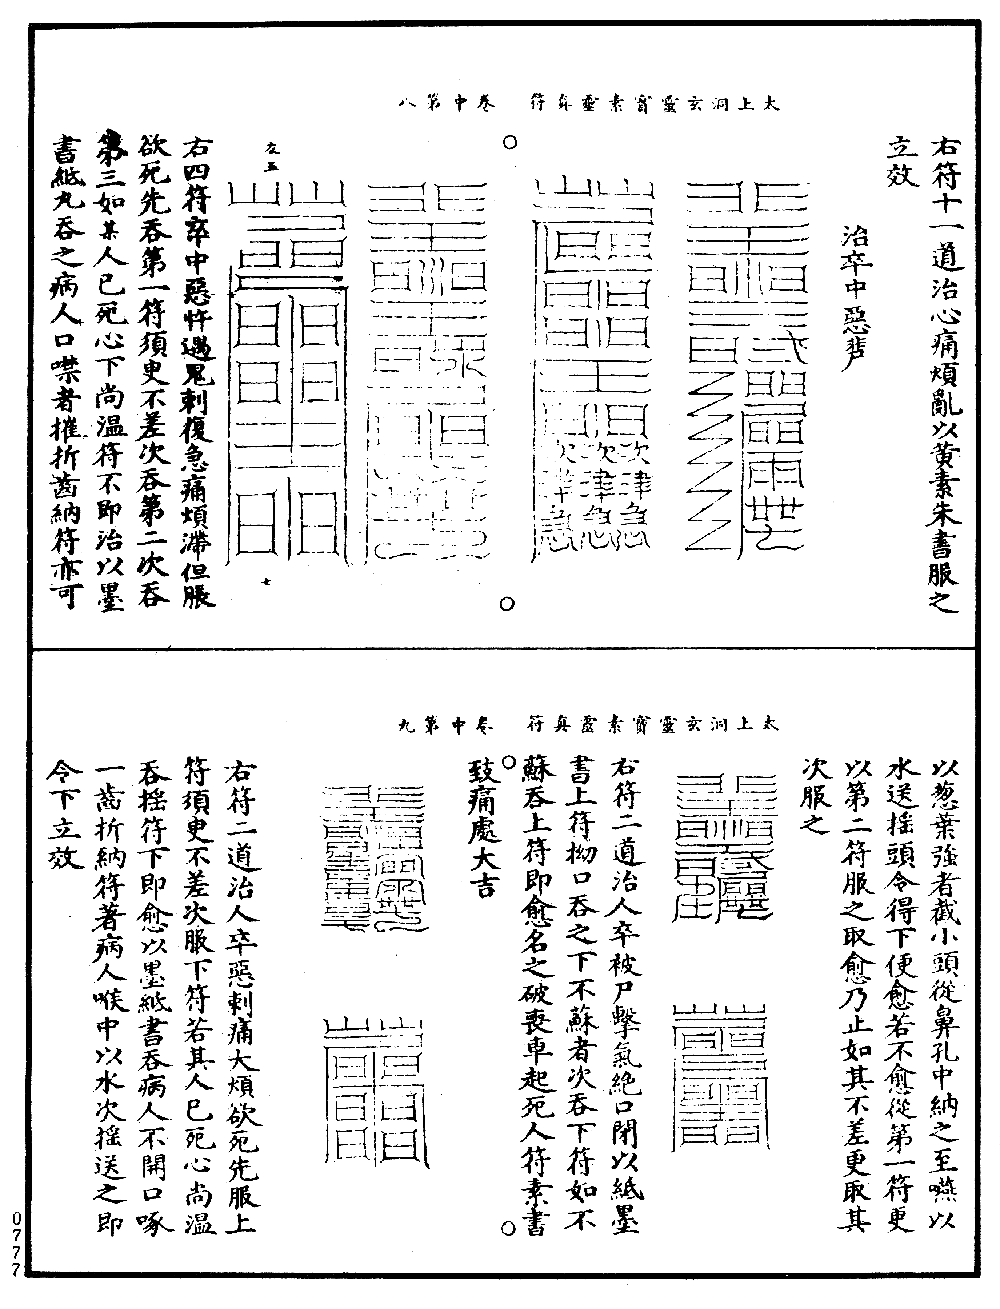 太上洞玄靈寶素靈真符　卷中第八
右符十一道治心痛煩亂以黄素朱書服之
立效
治卒中惡
左五
七
右四符卒中惡忤遇鬼刺復急痛煩滯但脹
欲死先吞第一符須更不差次吞第二次吞
第三如某人已死心下尚温符不即治以墨
書紙丸吞之病人口噤者摧折齒納符亦可
太上洞玄靈寶素靈真符　卷中第九
以葱葉強者截小頭從鼻孔中納之至嚥以
水送搖頭令得下便愈若不愈從第一符更
以第二符服之取愈乃止如其不差更取其
次服之
右符二道治人卒被尸擊氣絶口閉以紙墨
書上符拗口吞之下不蘇者次吞下符如不
蘇吞上符即愈名之破喪車起死人符素書
致痛處大吉
右符二道治人卒惡刺痛大煩欲死先服上
符須更不差次服下符若其人已死心尚温
吞搖符下即愈以墨紙書吞病人不開口啄
一齒折納符著病人喉中以水次搖送之即
令下立效
0777